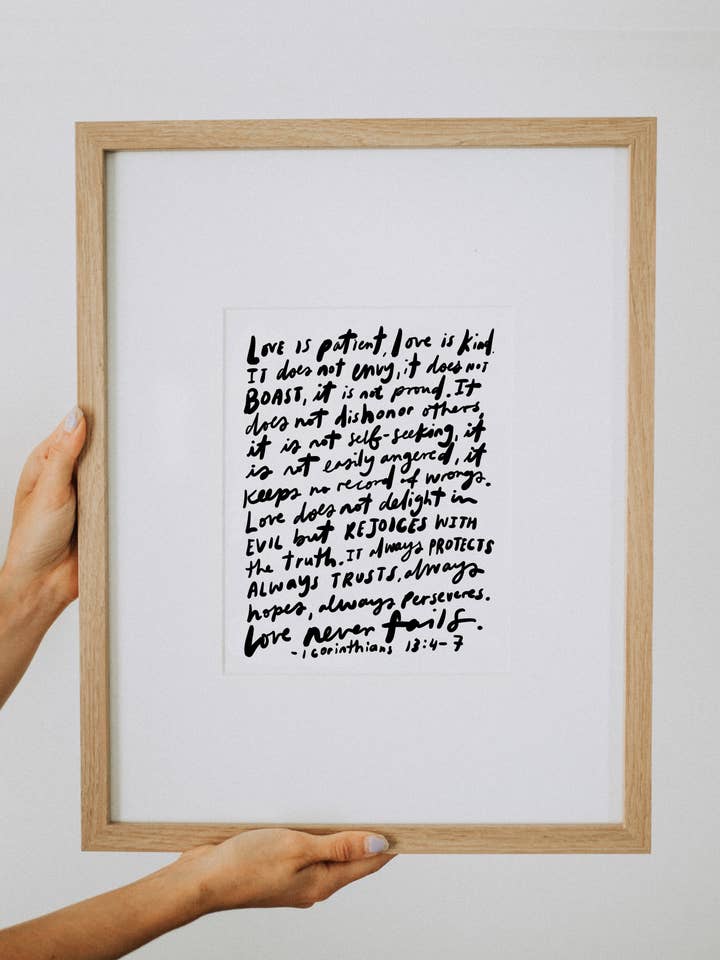 Love is patient, love is kind.
IT does not envy, it does NOT
BOAST, it is not proud. It
does not dishonor others,
it is not self-seeking, it
is not easily angered, it
keeps no record of wrongs.
Love does not delight in
EVIL but REJOICES WITH
the truth. IT always PROTECTS
ALWAYS TRUSTS, always
hopes, always Perseveres.
Love never fails.
-1 Corinthians 13:4-7